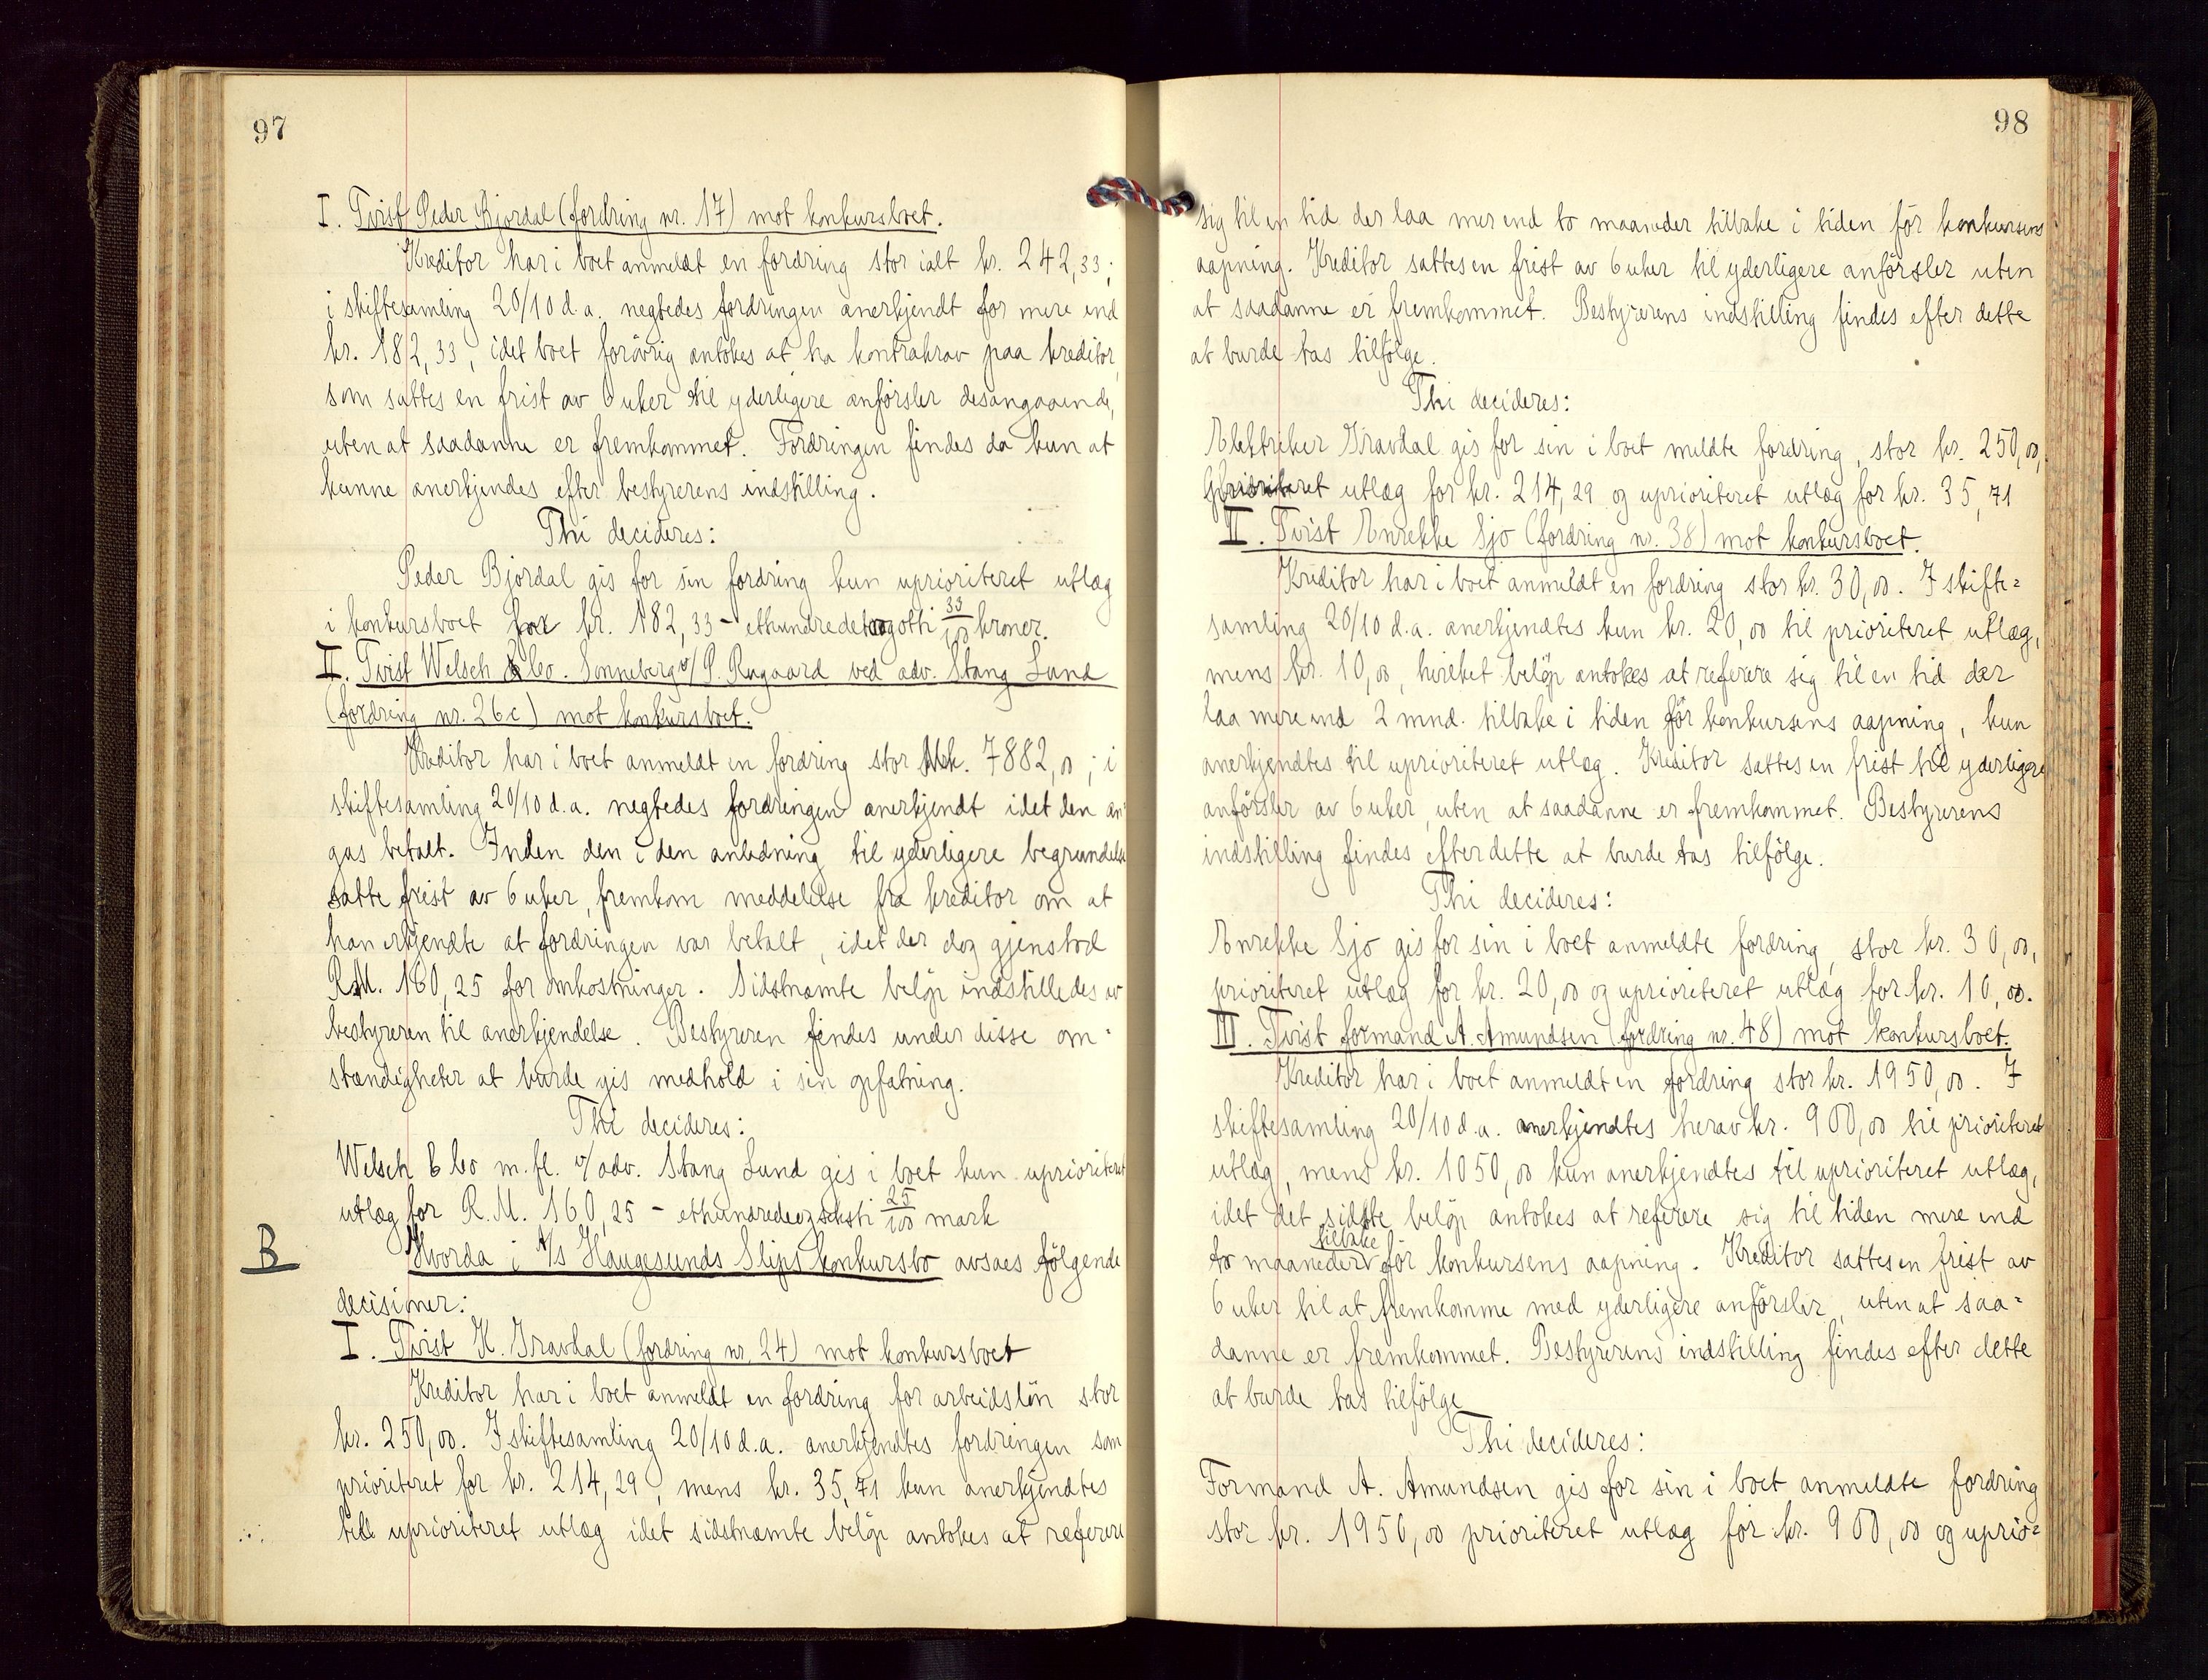 97
I. Tvist Peder Bjordal (fordring nr. 17) mot konkursboet.
Kreditor har i boet anmeldt en fordring stor ialt kr. 242,33;
i skiftesamling 20/10 d.a. negtedes fordringen anerkjendt for mere end
kr. 182,33, idet boet forövrig antokes at ha kontrakrav paa kreditor,
som sattes en frist av 6 uker til yderligere anförsler desangaaende,
uten at saadanne er fremkommet. Fordringen findes da kun at
kunne anerkjendes efter bestyrerens indstilling.
Thi decideres:
Peder Bjordal gis for sin fordring kun uprioriteret utlæg
i konkursboet for kr. 182,33 – ethundredetoogotti 33/100 kroner.
II. Tvist Welsch & Co. Sonneberg v/ P. Rugaard ved adv. Stang Lund
(fordring nr. 26c) mot konkursboet.
Kreditor har i boet anmeldt en fordring stor Mk. 7882,00; i
skiftesamling 20/10 d.a. negtedes fordringen anerkjendt idet den an-
gas betalt. Inden den i den anledning til yderligere begrundelse
satte frist av 6 uker, fremkom meddelelse fra kreditor om at
han erkjendte at fordringen var betalt, idet der dog gjenstod
R.M. 160,25 for omkostninger. Sidstnæmte belöp indstilledes av
bestyreren til anerkjendelse. Bestyreren findes under disse om=
stændigheter at burde gis medhold i sin opfatning.
Thi decideres:
Welsch & Co m.fl. v/ adv. Stang Lund gis i boet kun uprioriteret
utlæg for R.M. 160,25 – ethundredeogseksti 25/100 mark
B
Hvorda i A/s Haugesunds Slips konkursbo avsaes fölgende
decisioner:
I. Tvist K. Gravdal (fordring nr. 24) mot konkursboet
Kreditor har i boet anmeldt en fordring for arbeidslön stor
kr. 250,00. I skiftesamling 20/10 d.a. anerkjendtes fordringen som
prioriteret for kr. 214,29, mens kr. 35,71 kun anerkjendtes
till uprioriteret utlæg idet sidstnæmte belöp antokes at referere
98
sig til en tid der laa mer end to maaneder tilbake i tiden för konkursens
aapning. Kreditor sattes en frist av 6 uker til yderligere anförsler uten
at saadanne er fremkommet. Bestyrerens indstilling findes efter dette
at burde tas tilfölge.
Thi decideres:
Elektriker Gravdal gis for sin i boet meldte fordring, stor kr. 250,00,
prioriteret utlæg for kr. 214,29 og uprioriteret utlæg for kr. 35,71
II. Tvist Enrekke Sjo (fordring nr. 38) mot konkursboet.
Kreditor har i boet anmeldt en fordring stor kr. 30,00. I skifte=
samling 20/10 d.a. anerkjendtes kun kr. 20,00 til prioriteret utlæg,
mens kr. 10,00, hvilket belöp antokes at referere sig til en tid der
laa mere end 2 mnd. tilbake i tiden för konkursens aapning, kun
anerkjendtes til uprioriteret utlæg. Kreditor sattes en frist til yderligere
anförsler av 6 uker, uten at saadanne er fremkommet. Bestyrerens
indstilling findes efter dette at burde tas tilfölge.
Thi decideres:
Enrekke Sjo gis for sin i boet anmeldte fordring, stor kr. 30,00,
prioriteret utlæg for kr. 20,00 og uprioriteret utlæg for kr. 10,00.
III. Tvist formand A. Amundsen (fordring nr. 48) mot konkursboet.
Kreditor har i boet anmeldt en fordring stor kr. 1950,00. I
skiftesamling 20/10 d.a. anerkjendtes herav kr. 900,00 til prioriteret
utlæg, mens kr. 1050,00 kun anerkjendtes til uprioriteret utlæg,
idet det sidste belöp antokes at referere sig til tiden mere end
to maaneder tilbake för konkursens aapning. Kreditor sattes en frist av
6 uker til at fremkomme med yderligere anförsler, uten at saa=
danne er fremkommet. Bestyrerens indstilling findes efter dette
at burde tas tilfölge
Thi decideres:
Formand A. Amundsen gis for sin i boet anmeldte fordring
stor kr. 1950,00 prioriteret utlæg for kr. 900,00 og uprio=